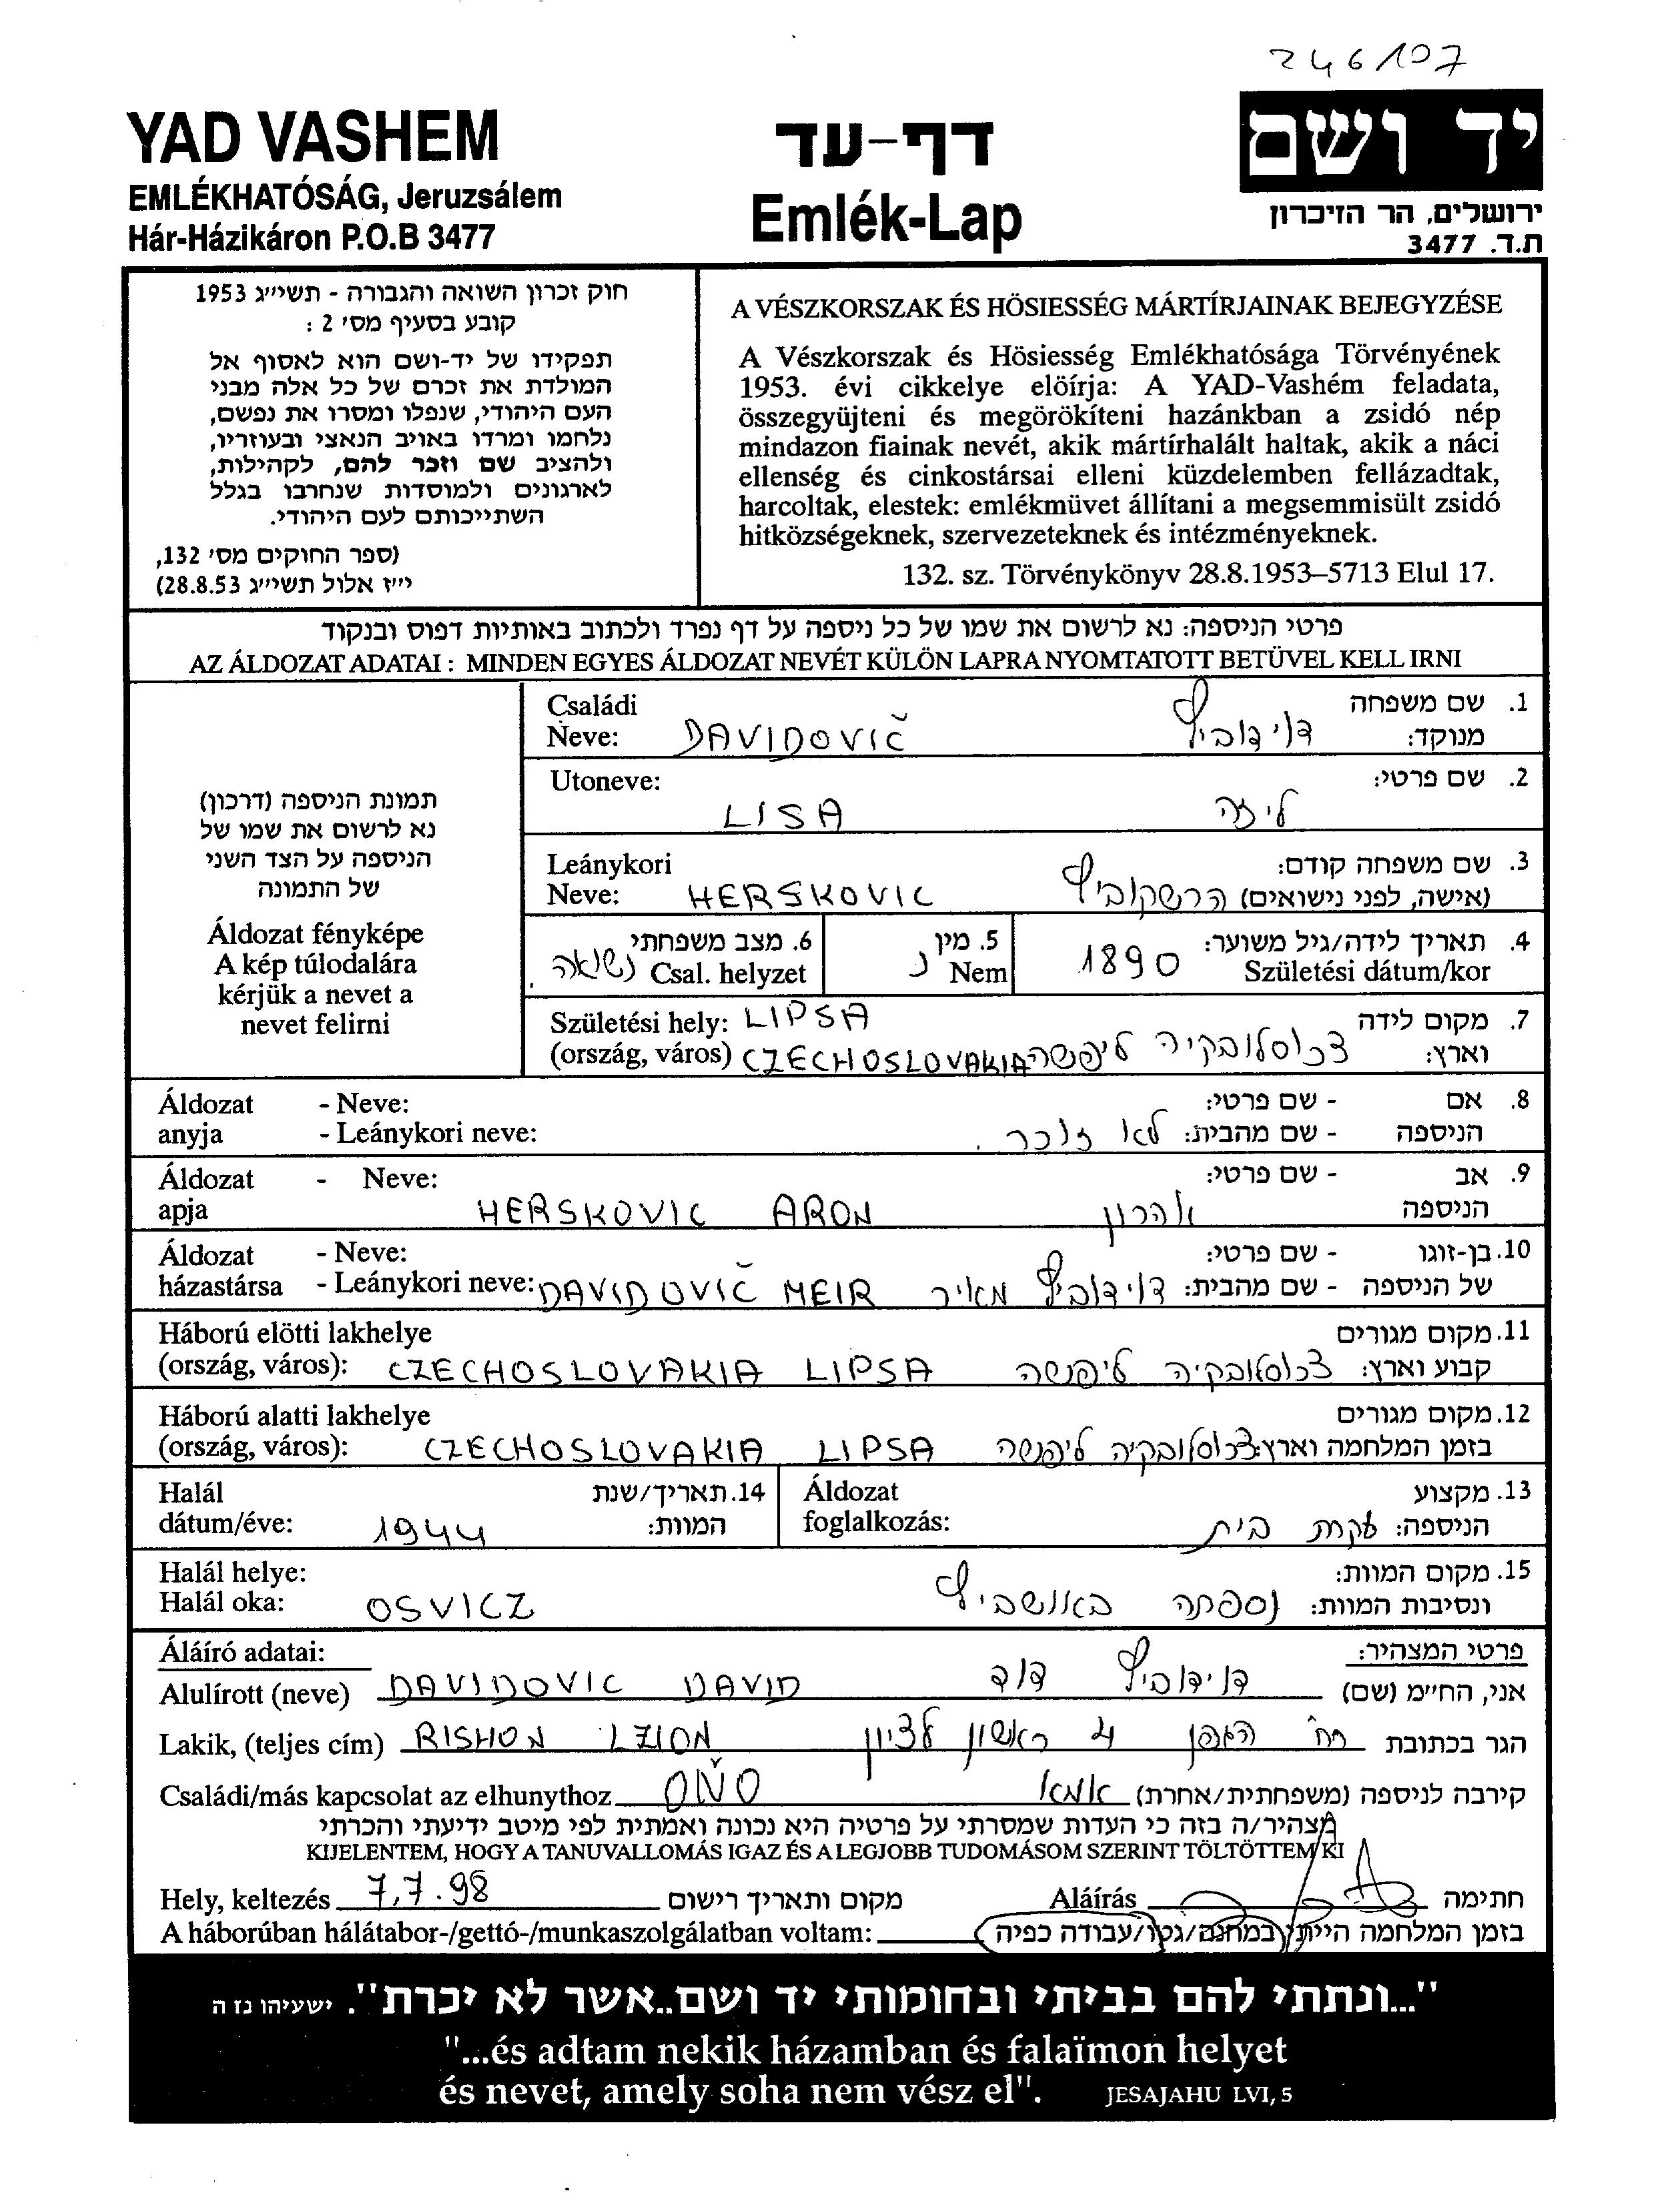 246107
YAD VASHEM
EMLÉKHATÓSÁG, Jeruzsálem
Hár-Házikáron P.O.B 3477
דף-עד
Emlék-Lap
יד ושם
ירושלים, הר הזיכרון
ת.ד. 3477
חוק זכרון השואה והגבורה - תשי״ג 1953
קובע בסעיף מס׳ 2 :
תפקידו של יד-ושם הוא לאסוף אל
המולדת את זכרם של כל אלה מבני
העם היהודי, שנפלו ומסרו את נפשם,
נלחמו ומרדו באויב הנאצי ובעוזריו,
ולהציב שם וזכר להם, לקהילות,
לארגונים ולמוסדות שנחרבו בגלל
השתייכותם לעם היהודי.
(ספר החוקים מס׳ 132,
י״ז אלול תשי״ג 28.8.53)
A VÉSZKORSZAK ÉS HÖSIESSÉG MÁRTÍRJAINAK BEJEGYZÉSE
A Vészkorszak és Hösiesség Emlékhatósága Törvényének
1953. évi cikkelye elöírja: A YAD-Vashém feladata,
összegyüjteni és megörökíteni hazánkban a zsidó nép
mindazon fiainak nevét, akik mártírhalált haltak, akik a náci
ellenség és cinkostársai elleni küzdelemben fellázadtak,
harcoltak, elestek: emlékmüvet állítani a megsemmisült zsidó
hitközségeknek, szervezeteknek és intézményeknek.
132. sz. Törvénykönyv 28.8.1953–5713 Elul 17.
פרטי הניספה: נא לרשום את שמו של כל ניספה על דף נפרד ולכתוב באותיות דפוס ובנקוד
AZ ÁLDOZAT ADATAI : MINDEN EGYES ÁLDOZAT NEVÉT KÜLÖN LAPRA NYOMTATOTT BETÜVEL KELL IRNI
תמונת הניספה (דרכון)
נא לרשום את שמו של
הניספה על הצד השני
של התמונה
Áldozat fényképe
A kép túlodalára
kérjük a nevet a
nevet felirni
Családi 1. שם משפחה
Neve: DAVIDOVIČ דוידוביץ מנוקד:
Utoneve: 2. שם פרטי:
LISA ליזה
Leánykori 3. שם משפחה קודם:
Neve: HERSKOVIC הרשקוביץ (אישה, לפני נישואים)
6. מצב משפחתי 5. מין 4. תאריך לידה/גיל משוער:
נשואה Csal. helyzet נ Nem 1890 Születési dátum/kor
Születési hely: LIPSA 7. מקום לידה
(ország, város) CZECHOSLOVAKIA צכוסלובקיה ליפשה וארץ:
Áldozat - Neve: - שם פרטי: 8. אם
anyja - Leánykori neve: לא זוכר. - שם מהבית: הניספה
Áldozat - Neve: - שם פרטי: 9. אב
apja HERSKOVIC ARON אהרון הניספה
Áldozat - Neve: - שם פרטי: 10. בן-זוגו
házastársa - Leánykori neve: DAVIDOVIČ MEIR דוידוביץ מאיר - שם מהבית: של הניספה
Háború elötti lakhelye 11. מקום מגורים
(ország, város): CZECHOSLOVAKIA LIPSA צכוסלובקיה ליפשה קבוע וארץ:
Háború alatti lakhelye 12. מקום מגורים
(ország, város): CZECHOSLOVAKIA LIPSA צכוסלובקיה ליפשה בזמן המלחמה וארץ:
Halál 14. תאריך/שנת Áldozat 13. מקצוע
dátum/éve: 1944 המוות: foglalkozás: עקרת בית הניספה:
Halál helye: 15. מקום המוות:
Halál oka: OSVICZ נספתה באושביץ ונסיבות המוות:
Áláíró adatai: פרטי המצהיר:
Alulírott (neve) DAVIDOVIC DAVID דוידוביץ דוד אני, הח״מ (שם)
Lakik, (teljes cím) RISHON LZION רח׳ הגפן 4 ראשון לציון הגר בכתובת
Családi/más kapcsolat az elhunythoz אמא קירבה לניספה (משפחתית/אחרת)
מצהיר/ה בזה כי העדות שמסרתי על פרטיה היא נכונה ואמתית לפי מיטב ידיעתי והכרתי
KIJELENTEM, HOGY A TANUVALLOMÁS IGAZ ÉS A LEGJOBB TUDOMÁSOM SZERINT TÖLTÖTTEM KI
Hely, keltezés 7.7.98 מקום ותאריך רישום Aláírás חתימה
A háborúban hálátabor-/gettó-/munkaszolgálatban voltam: בזמן המלחמה הייתי במחנה/גטו/עבודה כפיה
"...ונתתי להם בביתי ובחומותי יד ושם..אשר לא יכרת". ישעיהו נז ה
"...és adtam nekik házamban és falaïmon helyet
és nevet, amely soha nem vész el". JESAJAHU LVI, 5